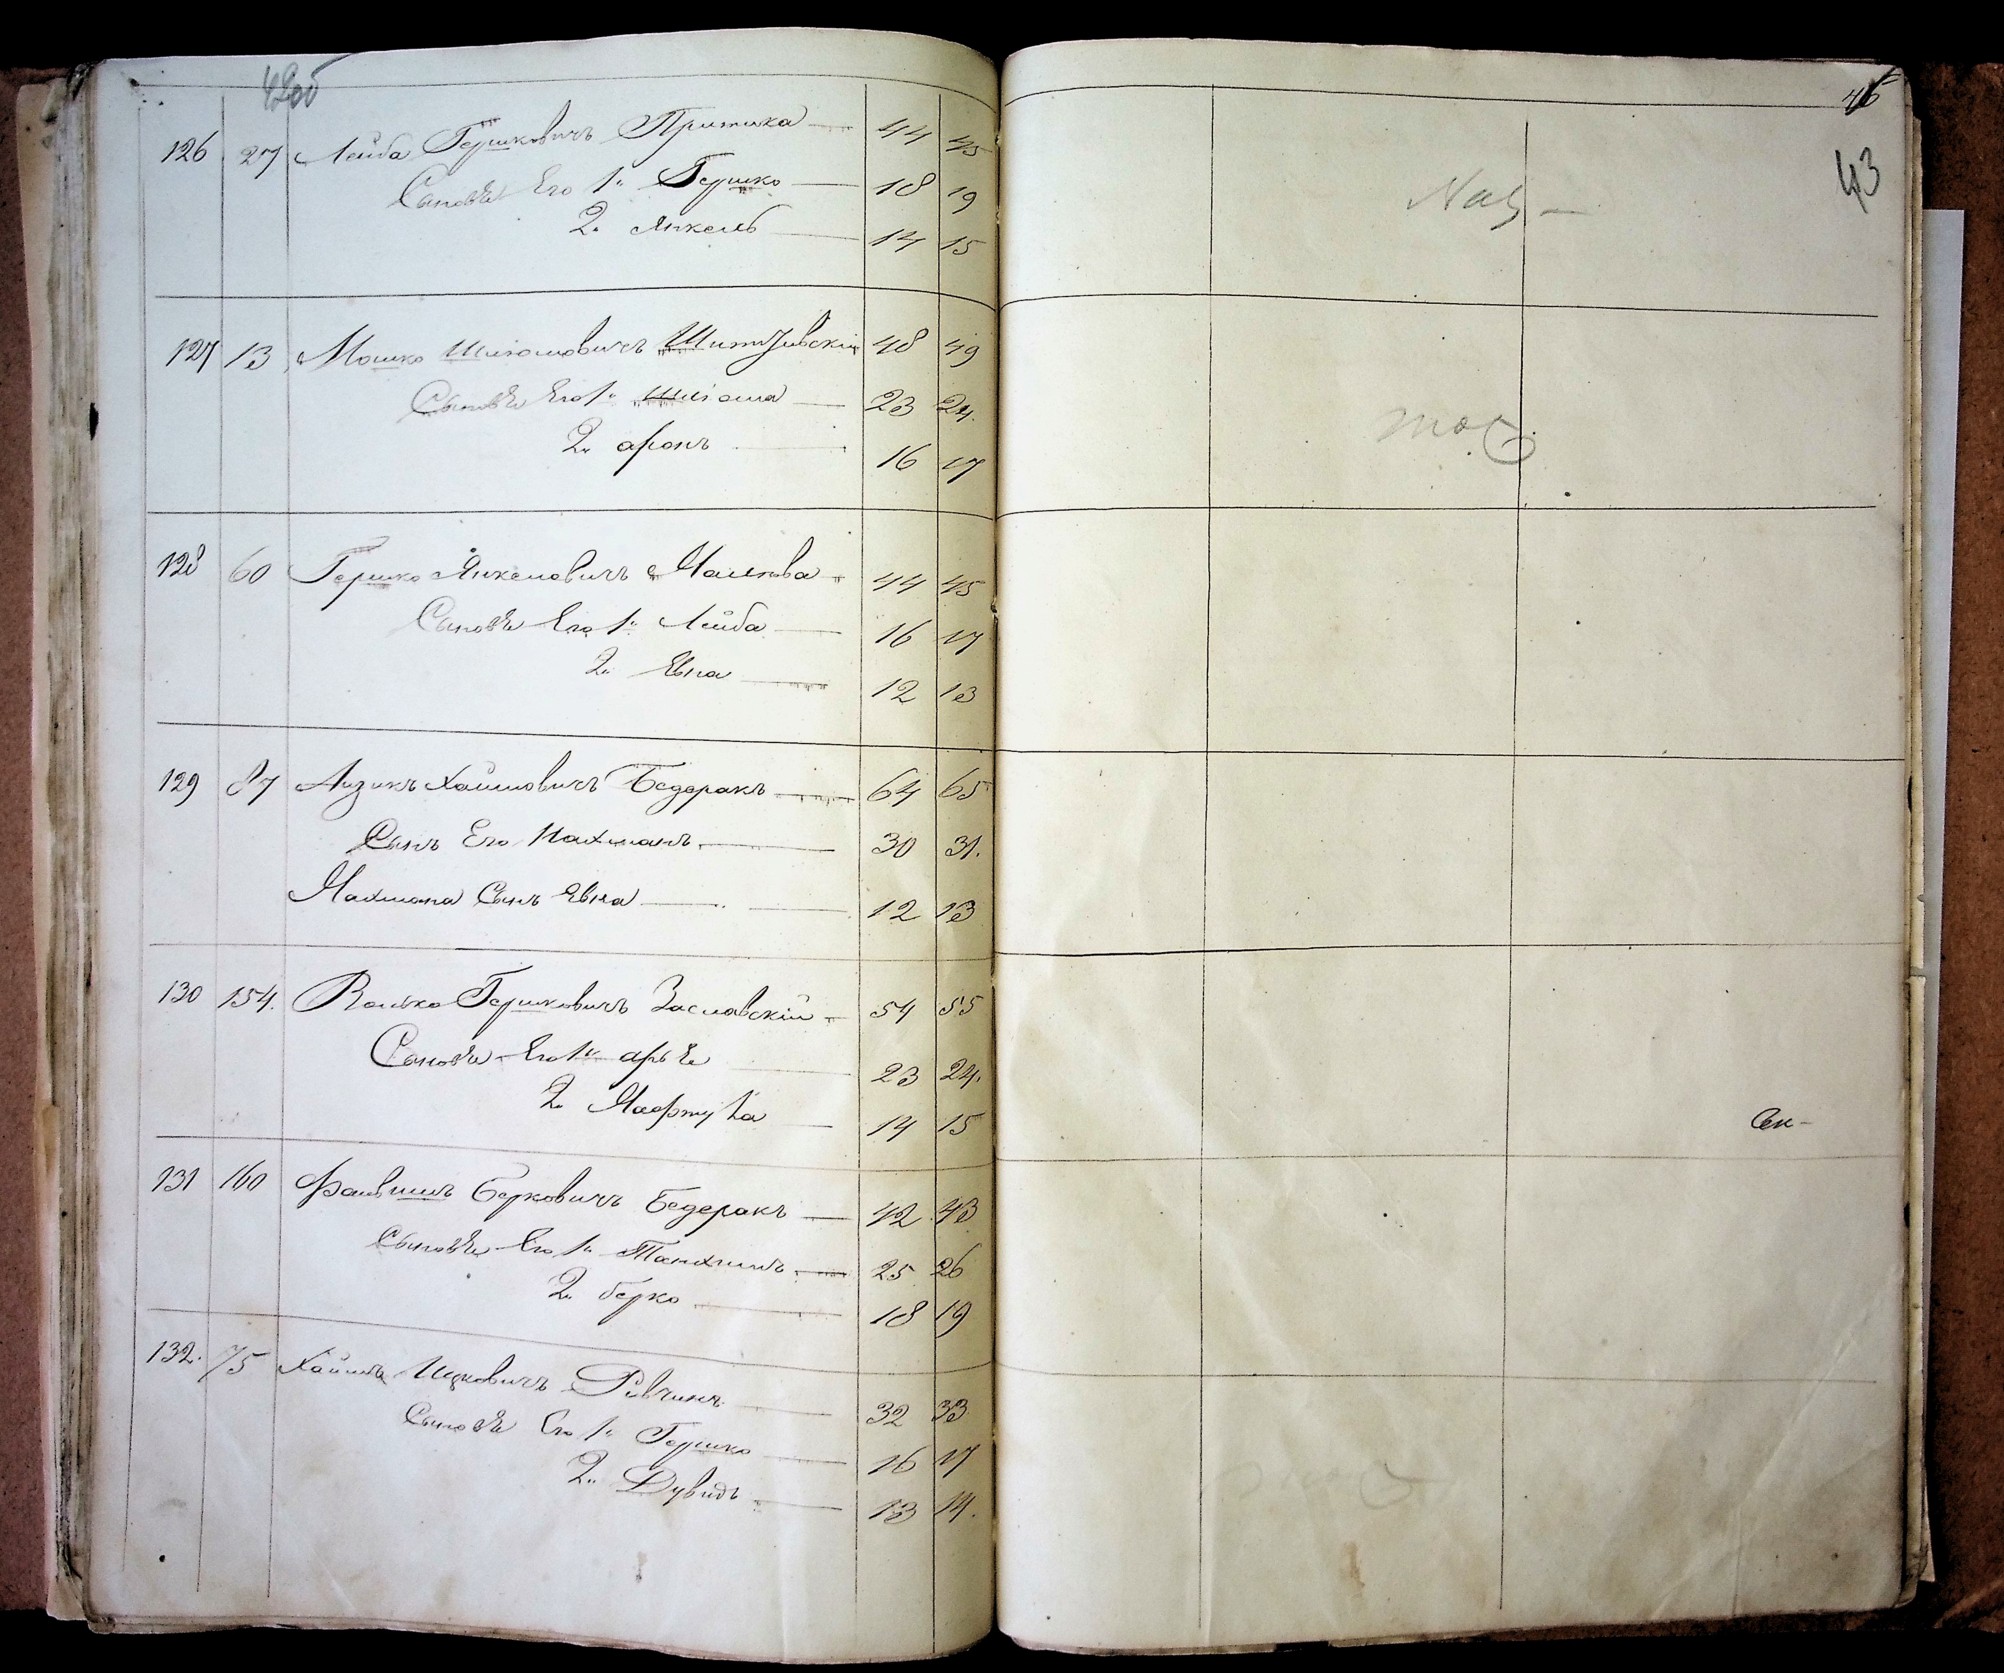 42об
126 27 Лейба Гершковичъ Притика 44 45
Сыновья Его 1. Гершко 18 19
2. Янкель 14 15
127 13 Мошко Шліомовичъ 48 49
Сыновья Его 1. Шліома 23 24.
2. Аронъ 16 17
128 60 Гершко Янкелевичъ 44 45
Сыновья Его 1. Лейба 16 17
2. Евна 12 13
129 87 Аизикъ Хаимовичъ Бедеракъ 64 65
Сынъ Его Нахманъ 30 31.
Нахмана Сынъ Евна 12 13
130 154. Волько Гершковичъ Заславскій 54 55
Сыновья Его 1. Арье 23 24.
2. 14 15
131 160 Файвишъ Берковичъ Бедеракъ 42 43
Сыновья Его 1. Танхимъ 25 26
2. Берко 18 19
132. 75 Хаимъ Ицковичъ Ривчинъ 32 33
Сыновья Его 1. Гершко 16 17
2. Дувидъ 13 14.
43